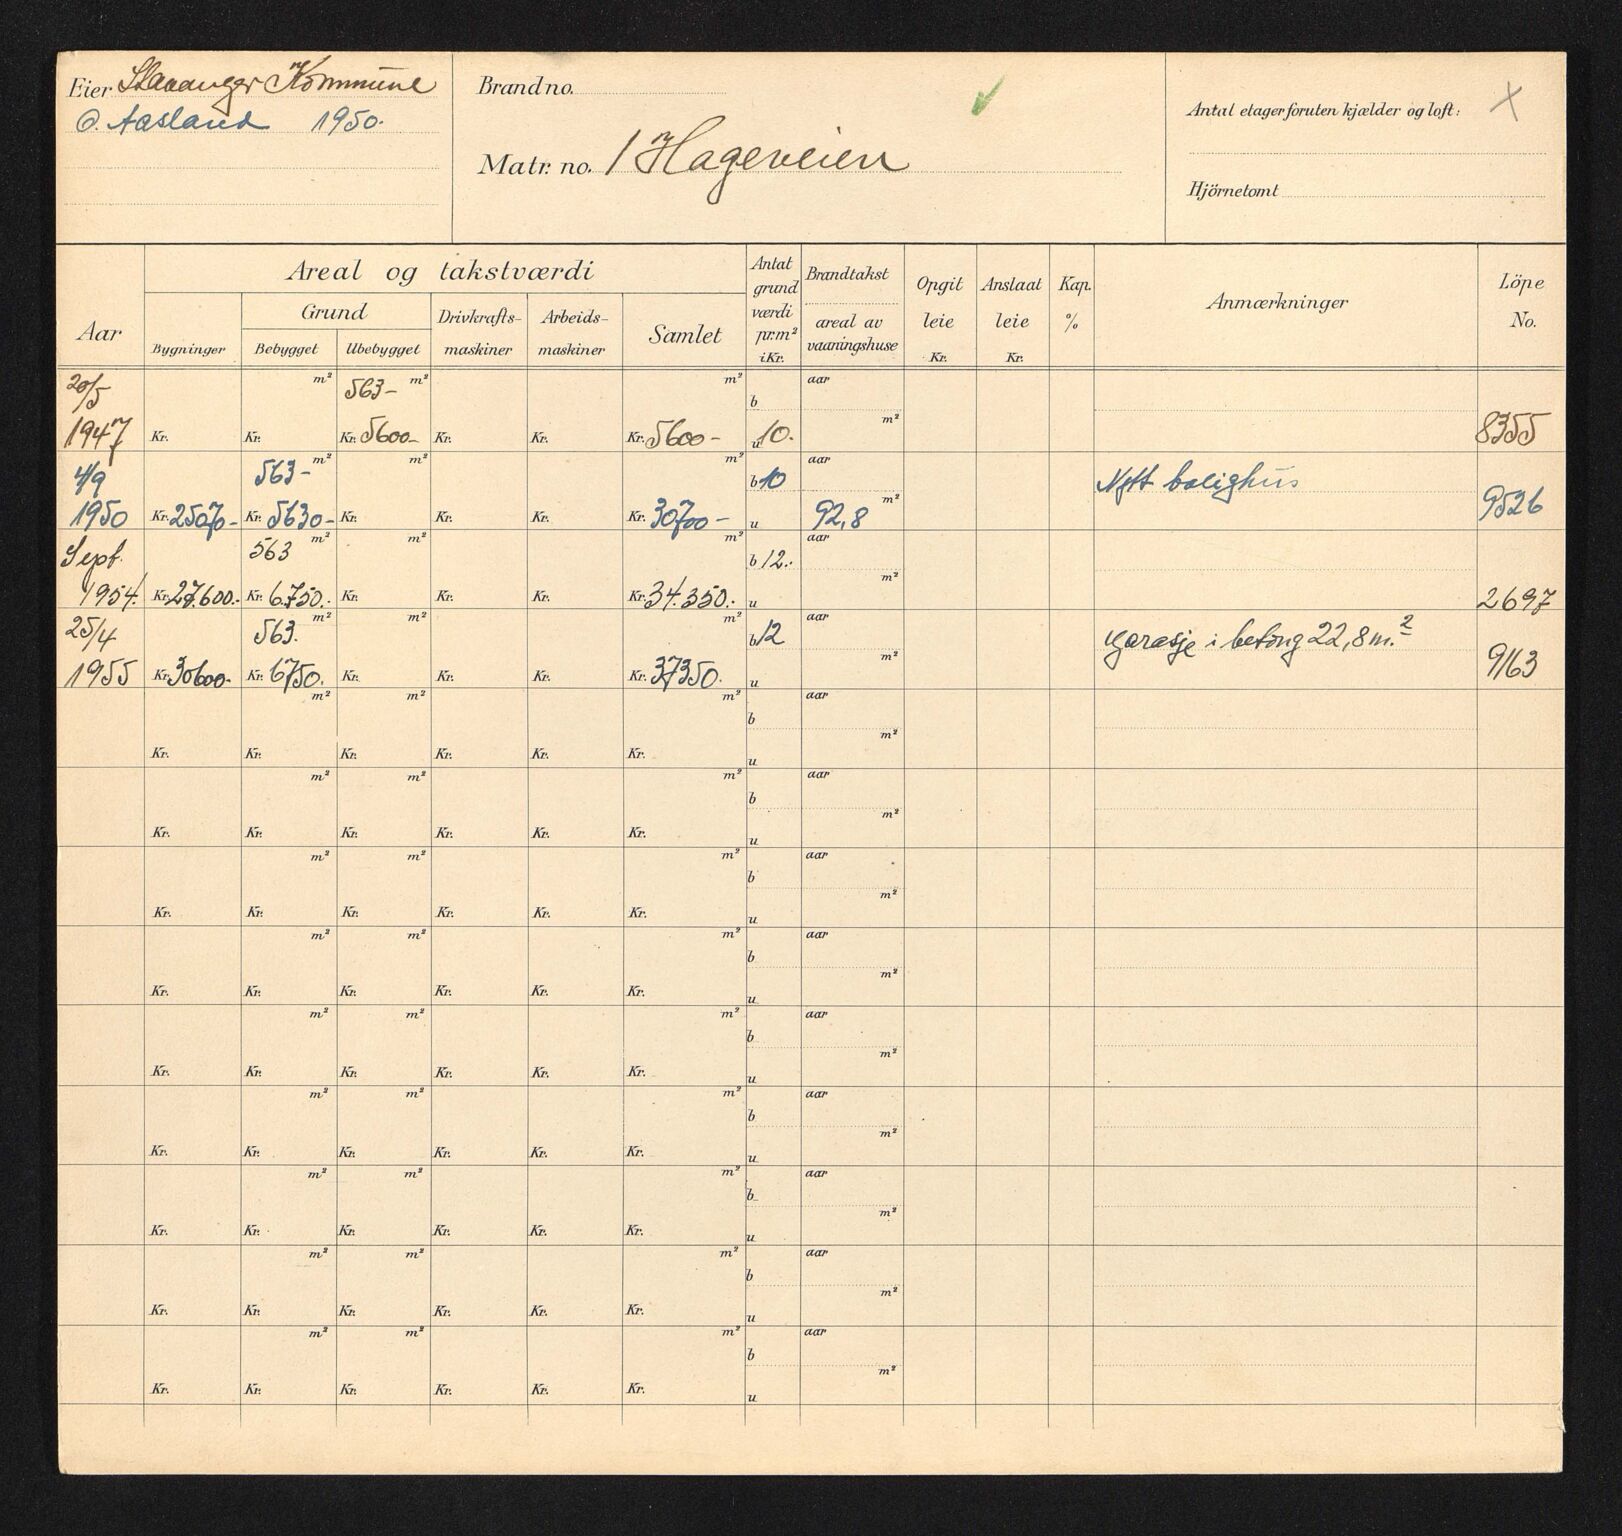 Eier Stavanger Kommune
O. Aasland 1950.
Brand no.
Matr. no. 1 Hageveien
Antal etager foruten kjælder og loft: X
Hjörnetomt
Aar
Areal og takstværdi
Grund
Bygninger
Bebygget
Ubebygget
Drivkrafts-
maskiner
Arbeids-
maskiner
Samlet
Antat
grund
værdi
pr.m²
i Kr.
Brandtakst
areal av
vaaningshuse
Opgit
leie
Kr.
Anslaat
leie
Kr.
Kap.
%
Anmærkninger
Löpe
No.
20/5 m² 563- m² m² b aar
1947 Kr. Kr. Kr. 5600- Kr. Kr. Kr. 5600- u 10. m² 8355
4/9 563- m² m² m² b 10 aar Nytt bolighus
1950 Kr. 25070- Kr. 5630- Kr. Kr. Kr. Kr. 30700- u 92,8 m² 9526
Sept. 563 m² m² m² b 12.- aar
1954. Kr. 27.600.- Kr. 6.750.- Kr. Kr. Kr. Kr. 34.350.- u m² 2697
25/4 563. m² m² m² b 12 aar garasje i betong 22,8 m.²
1955 Kr. 30600.- Kr. 6750. Kr. Kr. Kr. Kr. 37350. u m² 9163
m² m² m² b aar
Kr. Kr. Kr. Kr. Kr. Kr. u m²
m² m² m² b aar
Kr. Kr. Kr. Kr. Kr. Kr. u m²
m² m² m² b aar
Kr. Kr. Kr. Kr. Kr. Kr. u m²
m² m² m² b aar
Kr. Kr. Kr. Kr. Kr. Kr. u m²
m² m² m² b aar
Kr. Kr. Kr. Kr. Kr. Kr. u m²
m² m² m² b aar
Kr. Kr. Kr. Kr. Kr. Kr. u m²
m² m² m² b aar
Kr. Kr. Kr. Kr. Kr. Kr. u m²
m² m² m² b aar
Kr. Kr. Kr. Kr. Kr. Kr. u m²
m² m² m² b aar
Kr. Kr. Kr. Kr. Kr. Kr. u m²